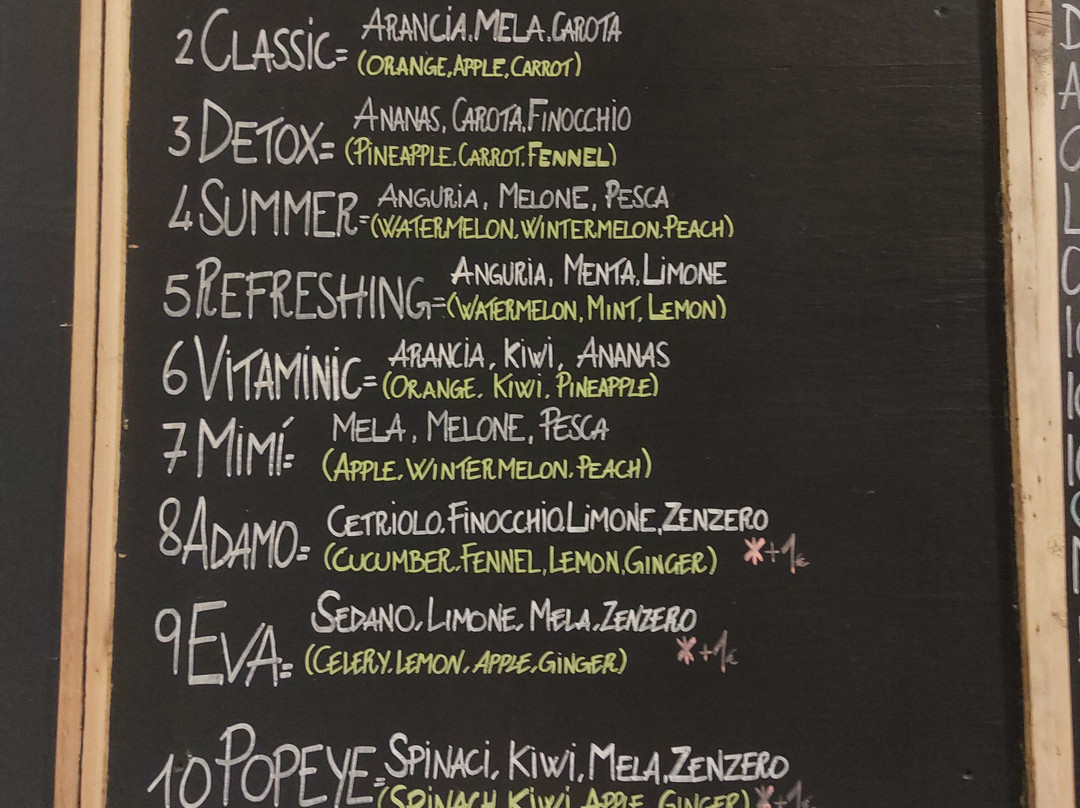 2 CLASSIC= ARANCIA.MELA.CAROTA
(ORANGE,APPLE,CARROT)
3 DETOX= ANANAS, CAROTA.FINOCCHIO
(PINEAPPLE.CARROT.FENNEL)
4 SUMMER= ANGURIA, MELONE, PESCA
(WATERMELON.WINTERMELON.PEACH)
5 REFRESHING= ANGURIA, MENTA,LIMONE
(WATERMELON, MINT, LEMON)
6 VITAMINIC= ARANCIA, KIWI, ANANAS
(ORANGE. KIWI. PINEAPPLE)
7 MIMÍ= MELA, MELONE, PESCA
(APPLE.WINTERMELON.PEACH)
8 ADAMO= CETRIOLO.FINOCCHIO.LIMONE,ZENZERO
(CUCUMBER.FENNEL,LEMON,GINGER) *+1€
9 EVA= SEDANO, LIMONE, MELA.ZENZERO
(CELERY.LEMON, APPLE,GINGER) *+1€
10 POPEYE= SPINACI, KIWI, MELA,ZENZERO
(SPINACH KIWI APPLE GINGER) *+1€